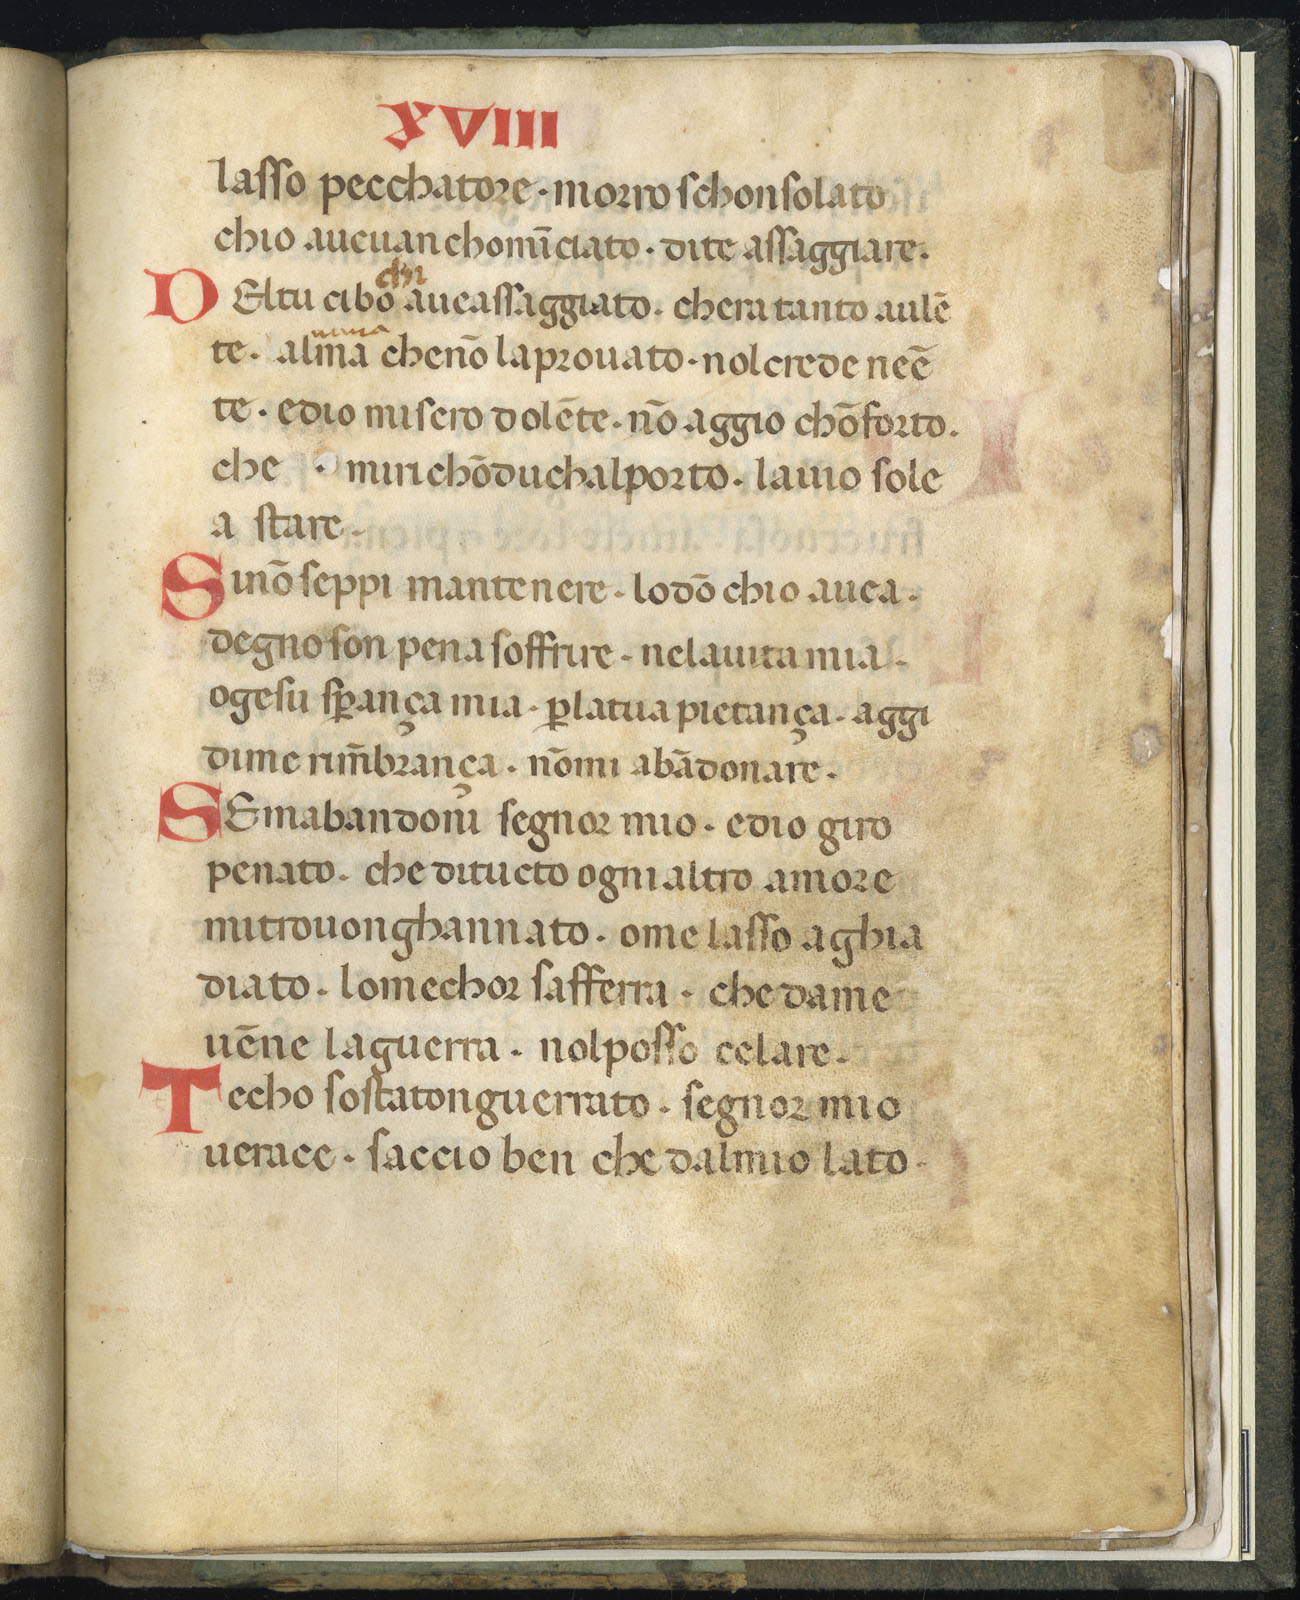 XVIII
lasso pecchatore · morro schonsolato
chio aueuan chomīciato · dite assaggiare ·
D Eltu cibo aueassaggiato · chera tanto aulē
te · alma chenō laprouato · nolcrede neē
te · edio misero dolēte · nō aggio chōforto ·
che · miri chōduchalporto · lauio sole
a stare ·
S inō seppi mantenere · lodō chio auea ·
degno son pena soffrire · nelauita mia ·
ogesu sꝑança mia · ꝑlatua pietança · aggi
dime rim̄brança · nōmi abādonare ·
S Emabandoni segnor mio · edio giro
penato · che ditucto ogni altro amore
mitrouonghannato · ome lasso aghia
diato · lomechor safferra · che dame
uēne laguerra · nolposso celare ·
T echo sostatonguerrato · segnor mio
uerace · saccio ben che dalmio lato ·